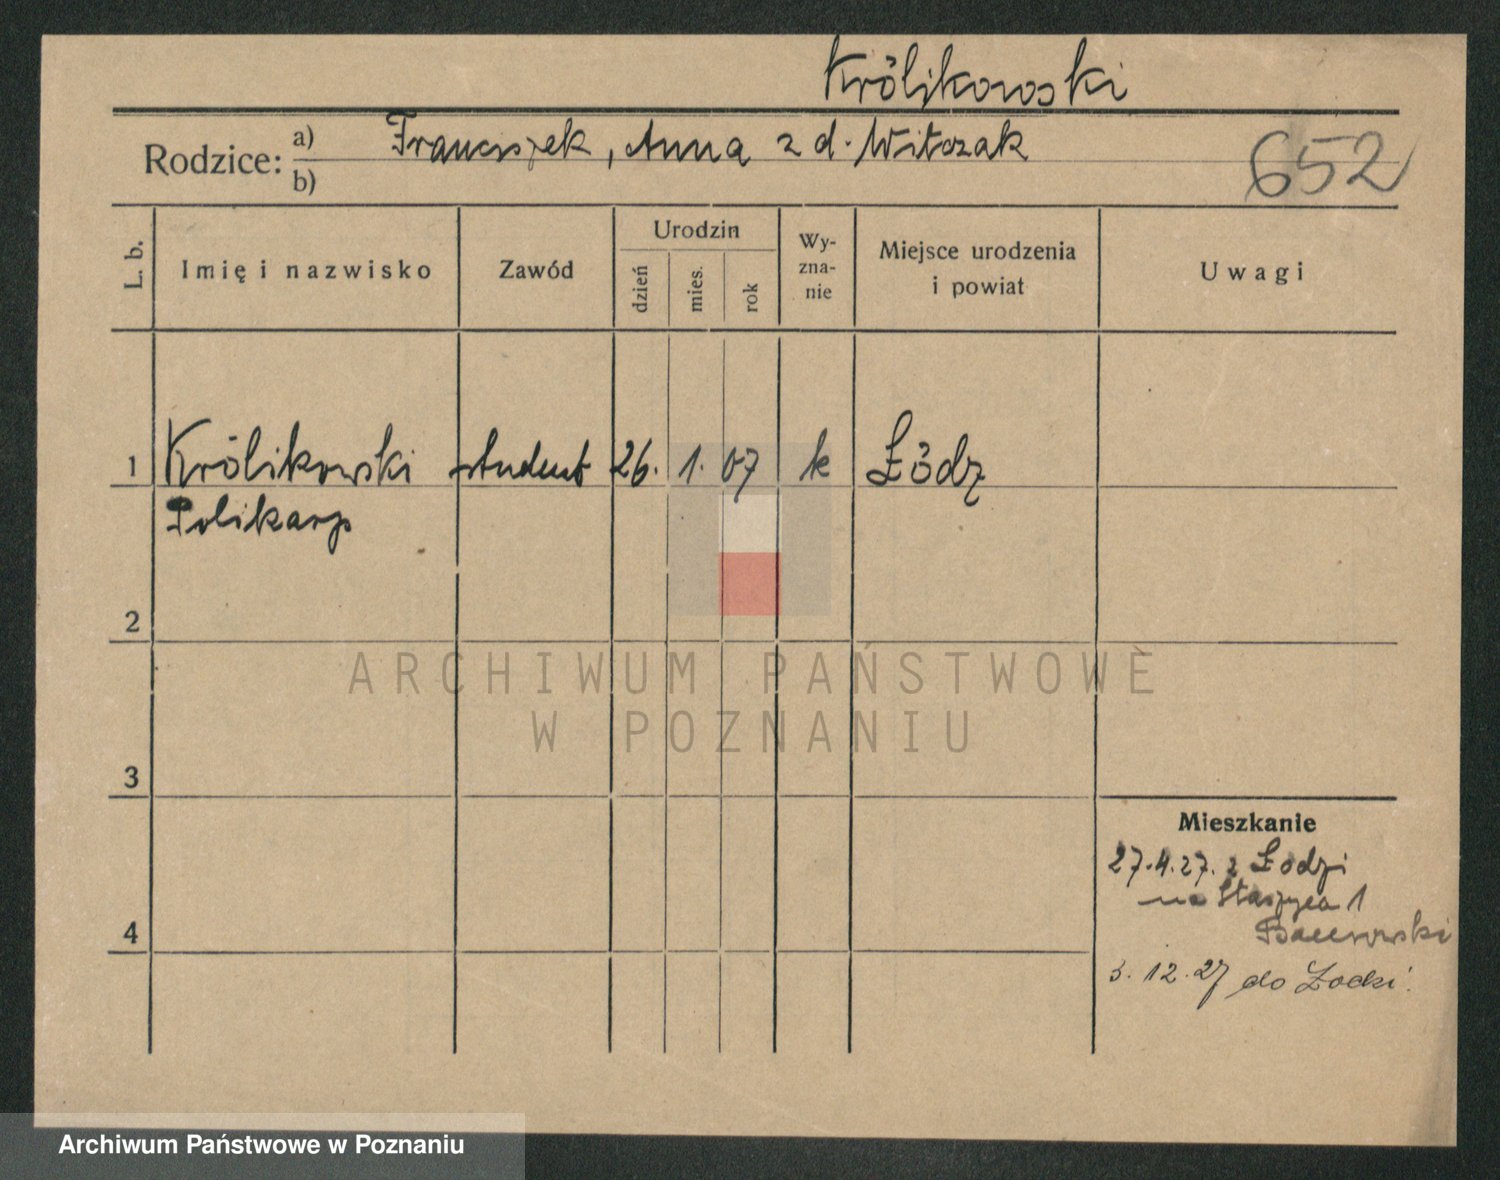 Królikowski
Rodzice: a) Franciszek, Anna z d. Witczak
b)
652
L. b.
Imię i nazwisko
Zawód
Urodzin
dzień
mies.
rok
Wy-
zna-
nie
Miejsce urodzenia
i powiat
Uwagi
1 Królikowski student 26. 1. 07 k Łódz
Polikarp
2
ARCHIWUM PAŃSTWOWE
W POZNANIU
3
Mieszkanie
27.4.27. z Łodzi
na Staszyca 1
4
3. 12. 27 do Łodzi.
Archiwum Państwowe w Poznaniu